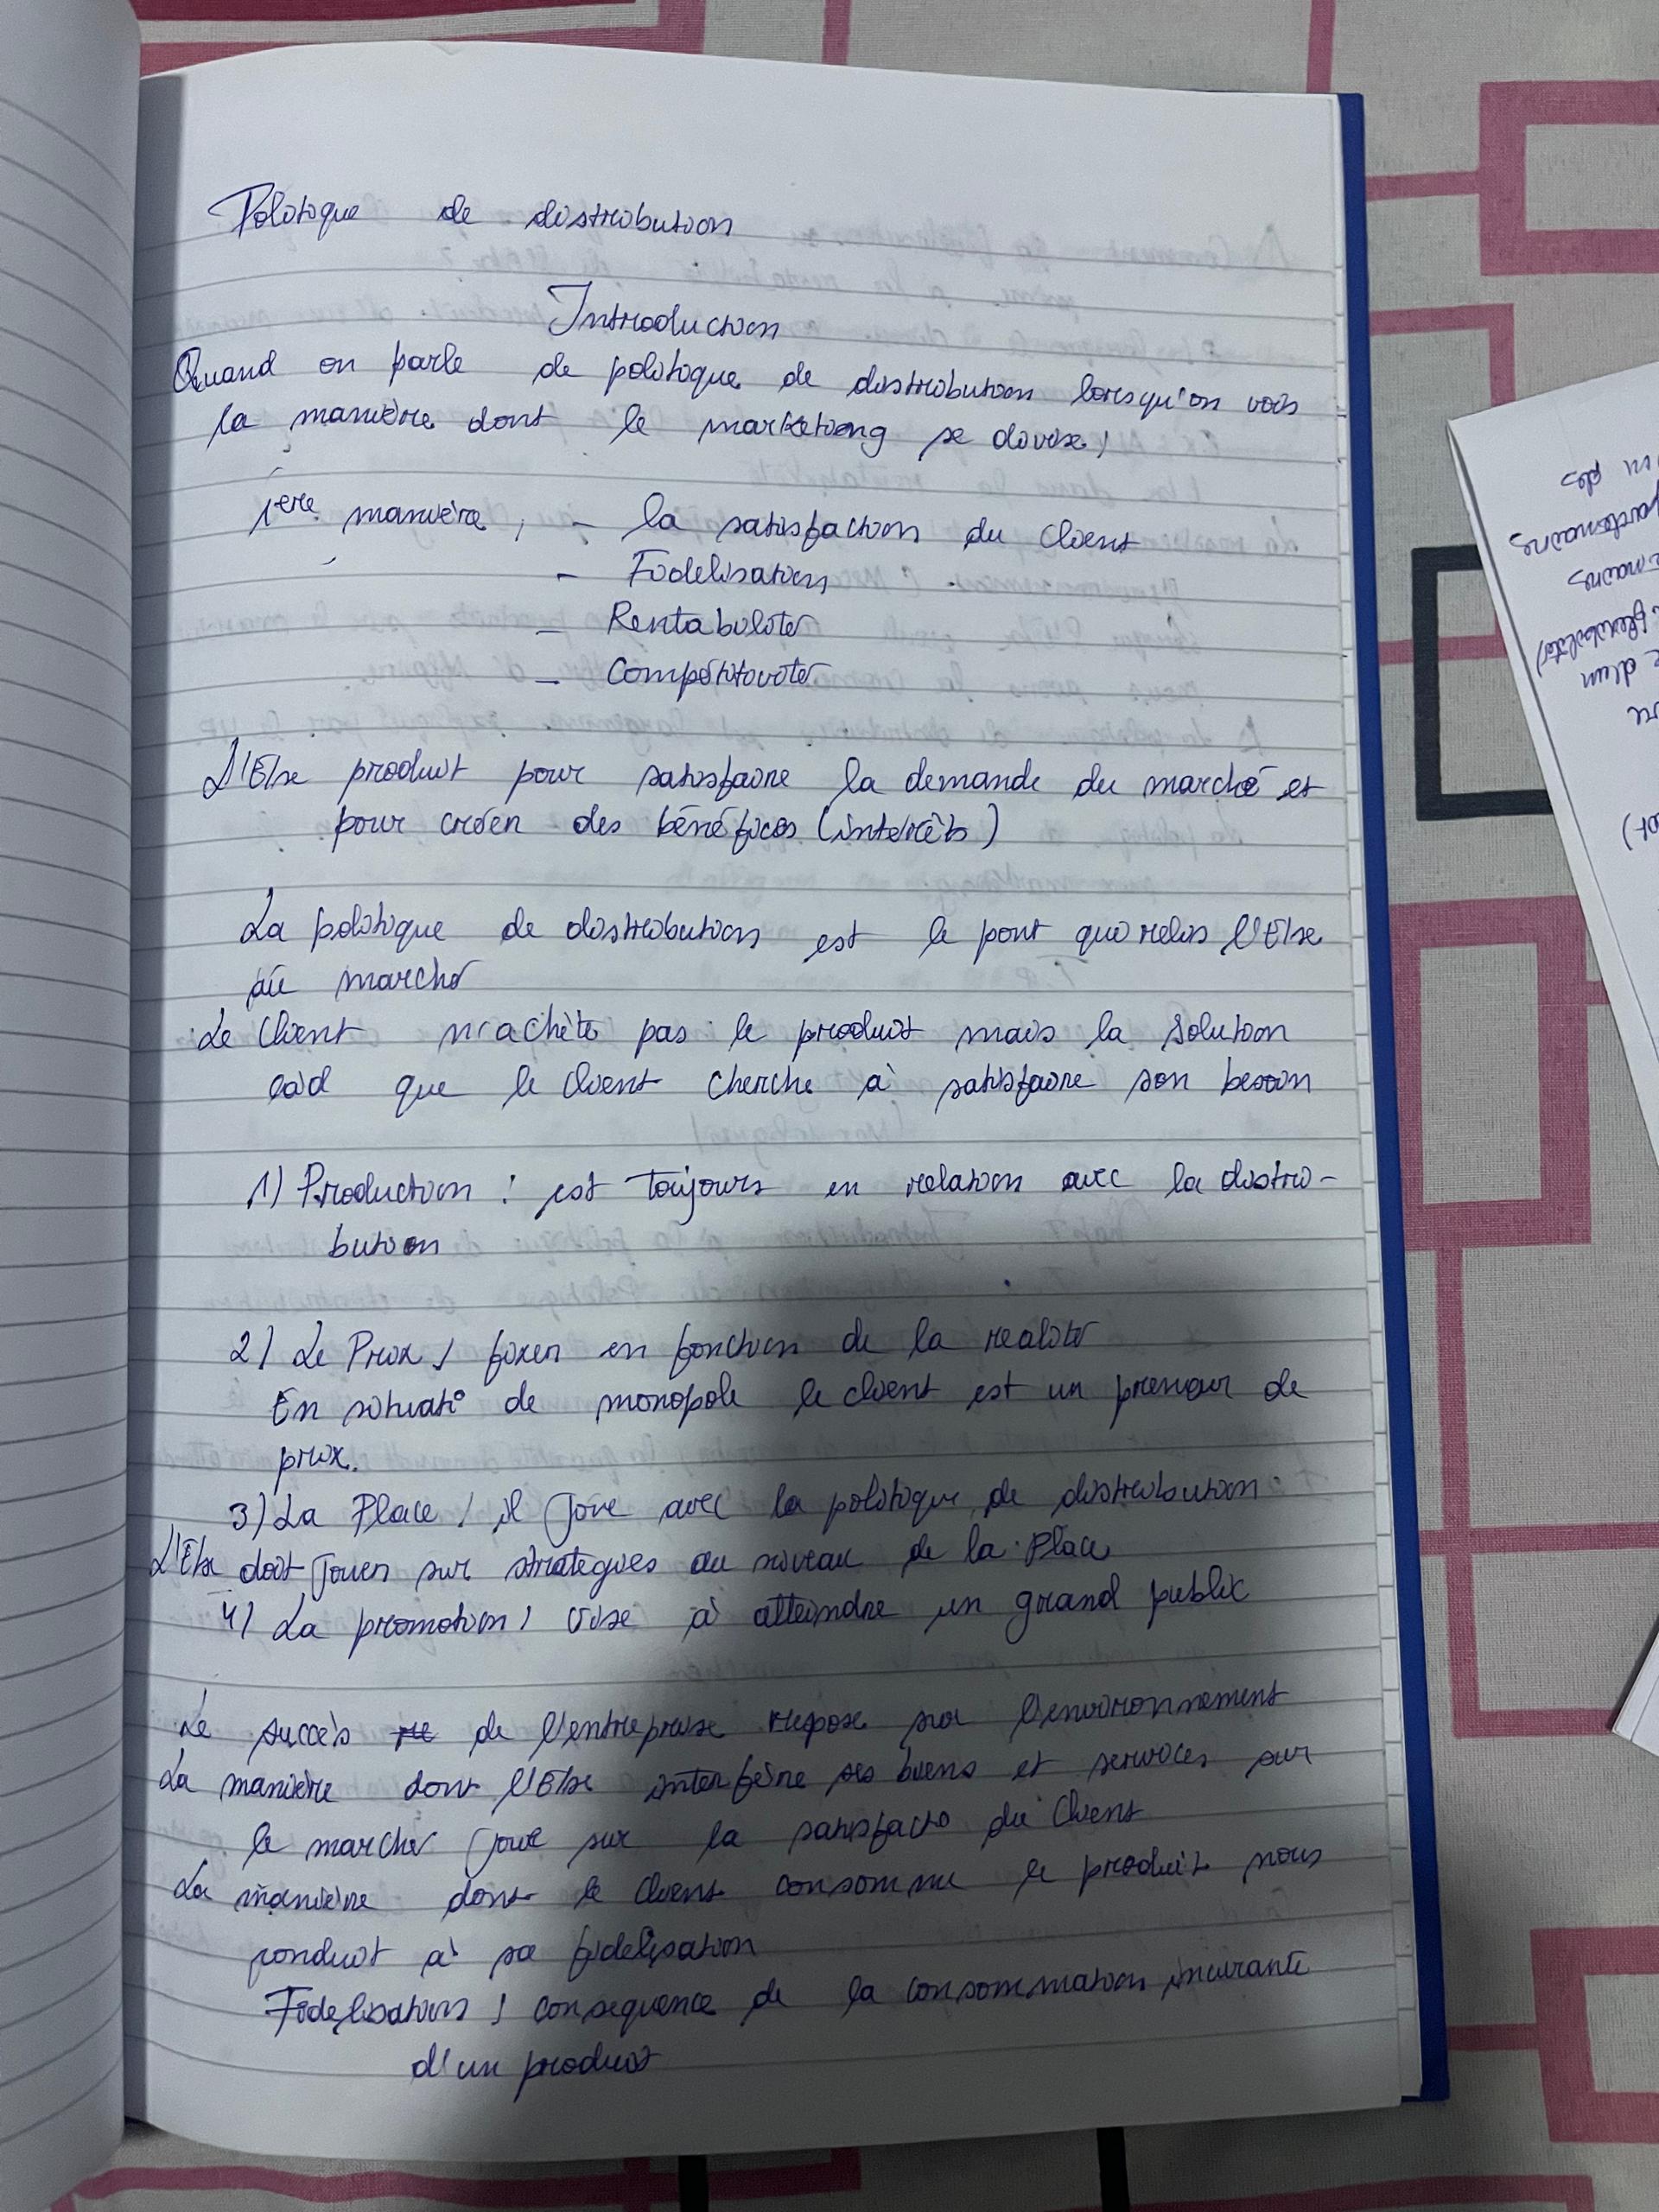 Politique de distribution
Introduction
Quand on parle de politique de distribution lorsqu'on vois
la manière dont le marketing se divise,
1ere manière, - la satisfaction du client
- Fidelisation
- Rentabilité
- Compétitivité
L'Else produit pour satisfaire la demande du marché et
pour créer des bénéfices (intérêts)
La politique de distribution est le pont qui relis l'Else
au marché
Le client n'achète pas le produit mais la solution
càd que le client cherche à satisfaire son besoin
1) Production : est toujours en relation avec la distri-
bution
2) Le Prix, fixer en fonction de la realité
En situat° de monopole le client est un preneur de
prix.
3) La Place, il joue avec la politique de distribution.
L'Else doit jouer sur strategies au niveau de la Place
4) La promotion, vise à atteindre un grand public
Le succès de l'entreprise repose sur l'environnement
La manière dont l'Else interfère ses biens et services sur
le marché joue sur la satisfact° du client
La manière dont le client consomme le produit nous
conduit à sa fidelisation
Fidelisation, consequence de la consommation
d'un produit
ou des
flexibilité)
e d'un